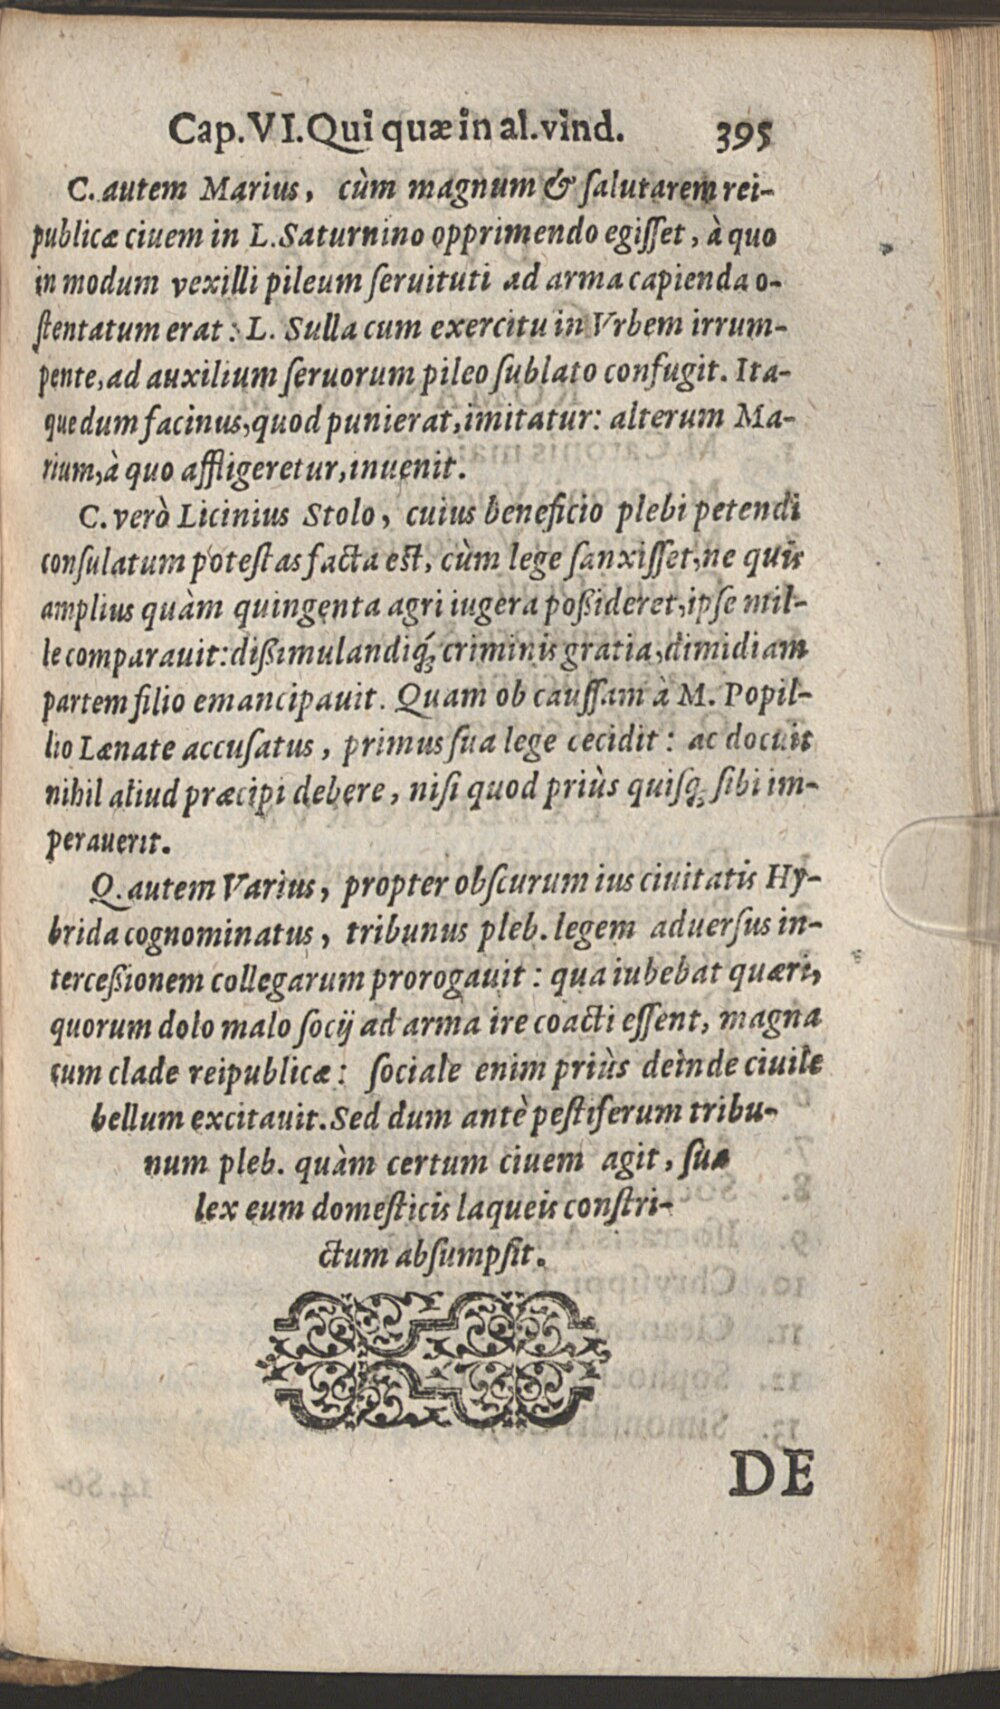 Cap. VI. Qui quæ in al. vind. 395
C. autem Marius, cùm magnum & ſalutarem rei-
publicæ ciuem in L. Saturnino opprimendo egiſſet, à quo
in modum vexilli pileum ſeruituti ad arma capienda o-
ſtentatum erat: L. Sulla cum exercitu in Vrbem irrum-
pente, ad auxilium ſeruorum pileo ſublato confugit. Ita-
que dum facinus, quod punierat, imitatur: alterum Ma-
rium, à quo affligeretur, inuenit.
C. verò Licinius Stolo, cuius beneficio plebi petendi
conſulatum poteſtas facta eſt, cùm lege ſanxiſſet, ne quis
amplius quàm quingenta agri iugera poßideret, ipſe mil-
le comparauit: dißimulandiq́; criminis gratia, dimidiam
partem filio emancipauit. Quam ob cauſſam à M. Popil-
lio Lænate accuſatus, primus ſua lege cecidit: ac docuit
nihil aliud præcipi debere, niſi quod priùs quiſq; ſibi im-
perauerit.
Q. autem Varius, propter obſcurum ius ciuitatis Hy-
brida cognominatus, tribunus pleb. legem aduerſus in-
terceßionem collegarum prorogauit: qua iubebat quæri,
quorum dolo malo ſocij ad arma ire coacti eſſent, magna
cum clade reipublicæ: ſociale enim priùs deinde ciuile
bellum excitauit. Sed dum antè peſtiferum tribu-
num pleb. quàm certum ciuem agit, ſua
lex eum domeſticis laqueis conſtri-
ctum abſumpſit.
DE